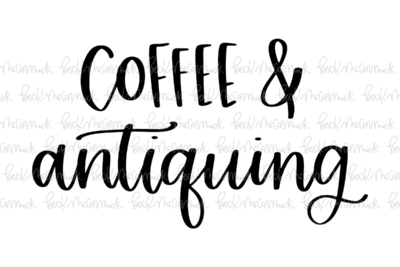 COFFEE &
antiquing